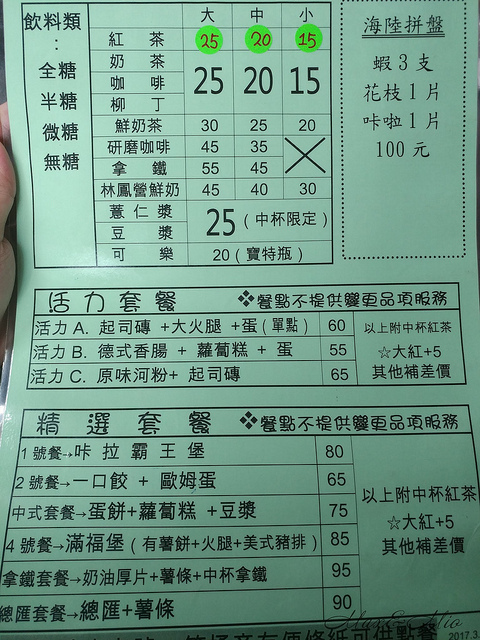 飲料類
:
全糖
半糖
微糖
無糖
大 中 小
紅茶 25 20 15
奶茶
咖啡 25 20 15
柳丁
鮮奶茶 30 25 20
研磨咖啡 45 35
拿鐵 55 45
林鳳營鮮奶 45 40 30
薏仁漿
豆漿
25 (中杯限定)
可樂 20 (寶特瓶)
海陸拼盤
蝦3支
花枝1片
咔啦1片
100元
活力套餐 ❖餐點不提供變更品項服務
活力 A. 起司磚 +大火腿 +蛋(單點) 60
活力 B. 德式香腸 + 蘿蔔糕 + 蛋 55
活力 C. 原味河粉+ 起司磚 65
以上附中杯紅茶
☆大紅+5
其他補差價
精選套餐 ❖餐點不提供變更品項服務
1號餐→咔拉霸王堡 80
2號餐→一口餃 + 歐姆蛋 65
中式套餐→蛋餅+蘿蔔糕 +豆漿 75
4號餐→滿福堡 (有薯餅+火腿+美式豬排) 85
拿鐵套餐→奶油厚片+薯條+中杯拿鐵 95
總匯套餐→總匯+薯條 90
以上附中杯紅茶
☆大紅+5
其他補差價
2017.3